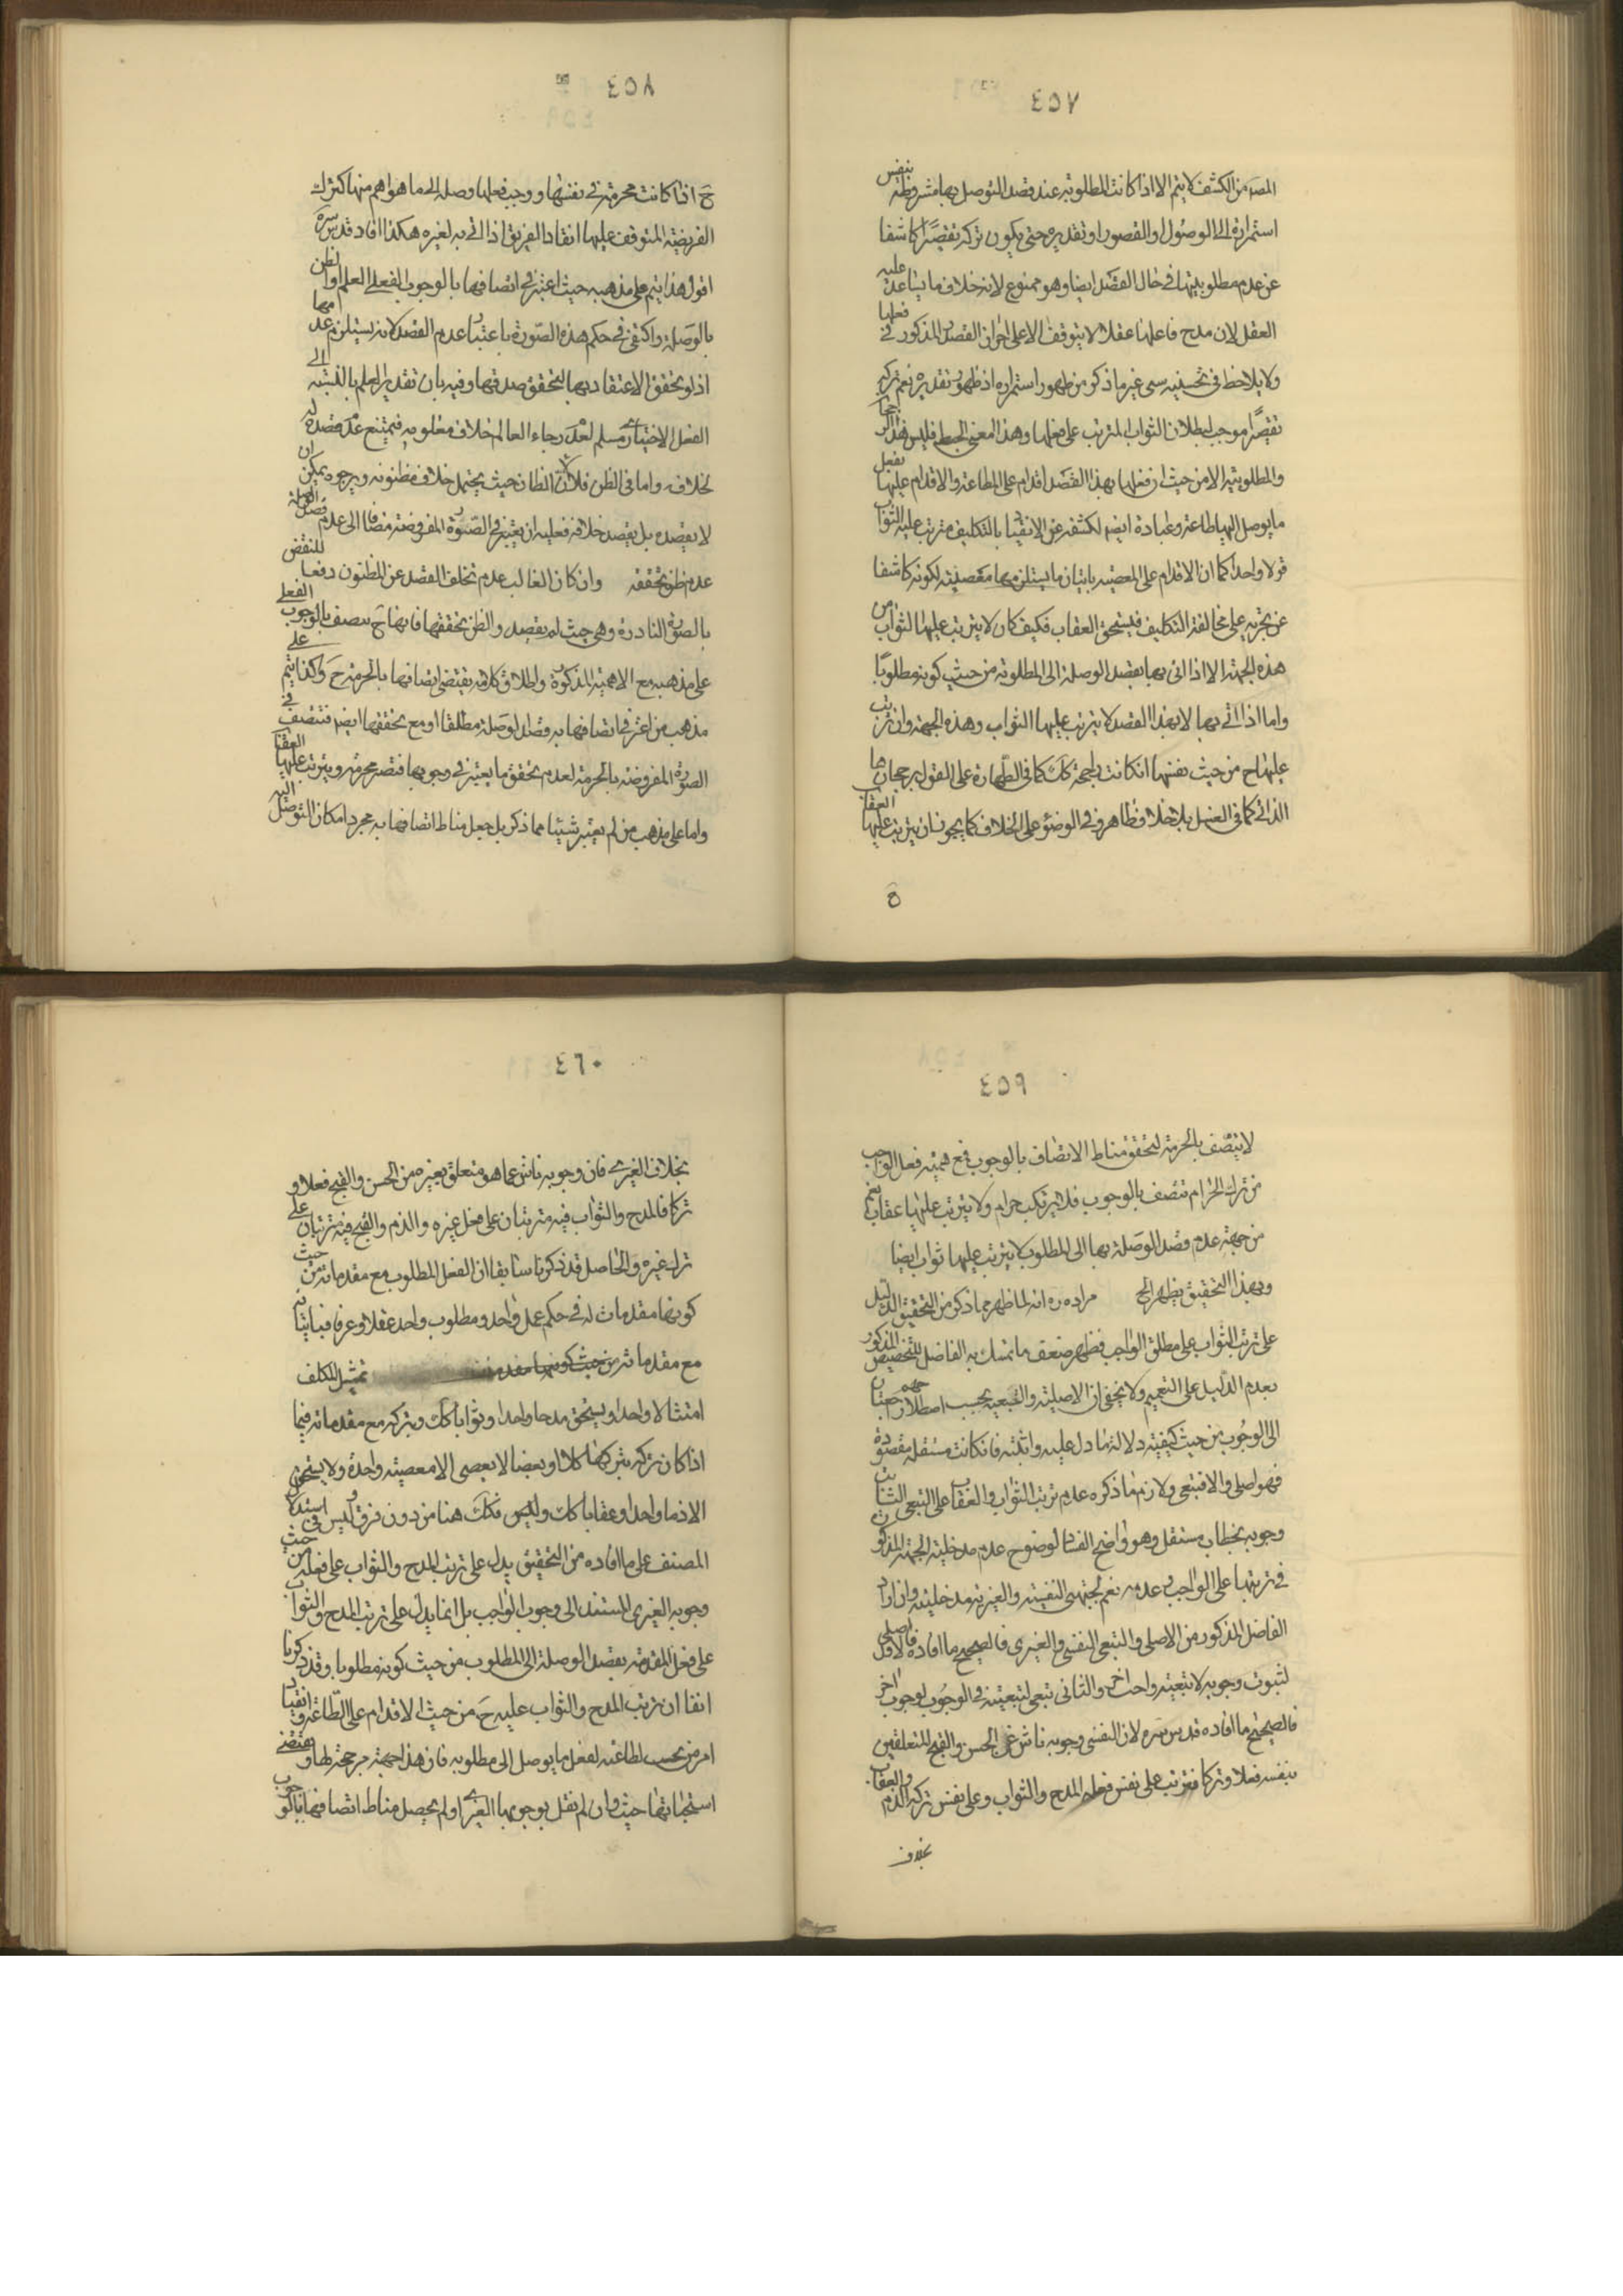 ٤٥٧
المصَه من الكشف لا يتم الا اذا كانت المطلوبية عند قصد التوصل بها مشروطة بنفس
استمراره الى الوصول او القصور او تقديره حتى يكون تركه نقصًا كاشفا
عن عدم مطلوبيتها فى حال القصد ايضا وهو ممنوع لانه خلاف ما يساعد عليه
العقل لان مدح فاعلها عقلا لا يتوقف الا على احراز القصد المذكور فى فعلها
ولا يلاحظ فى تحسينه شى غير ما ذكر من ظهور استمراره اذ ظهور تقديره نعم تركه
موجب لبطلان الثواب المترتب على فعلها وهذا المعنى
والمطلوبية الا من حيث ان فعلها بهذا القصد اقدام على الطاعة والاقدام عليها بفعل
ما يوصل اليها طاعة وعبادة ايضا لكشفه عن الانقياد بالتكليف مترتب عليه الثواب
قولا واحدا كما ان الاقدام على المعصية باتيان ما يستلزمها معصية لكونه كاشفا
عن تجريه على مخالفة التكليف فيستحق العقاب فكيف كان لا يترتب عليها الثواب من
هذه الجهة الا اذا اتى بها بقصد الوصلة الى المطلوبة من حيث كونه مطلوبًا
واما اذا اتى بها لا بهذا القصد لا يترتب عليها الثواب وهذه الجهة وان ترتب
عليها ح من حيث نفسها ان كانت راجحة كك كما فى الطهارة على القول برجحانها
الذاتى كما فى الغسل بلا خلاف ظاهر وفى الوضوء على الخلاف كما يجوز ان يترتب عليها العقاب
ح
٤٥٨
ح اذا كانت محرمة فى نفسها ووجب فعلها وصلة الى ما هو اهم منها كترك
الفريضة المتوقف عليها انقاذ الغريق اذا اتى به لغيره هكذا افاد قدس سره
اقول هذا يتم على مذهبه حيث اعتبر فى اتصافها بالوجوب الفعلى العلم او الظن
بالوصلة واكتفى فى حكم هذه الصورة باعتبار عدم القصد لانه يستلزم عدمها
اذ لو تحقق الاعتقاد بها لتحقق صدقها وفيه بان تقدير العلم بالنسبة الى
الفعل الاختيارى مسلم لعدم رجاء العالم خلاف معلومه فيمتنع عدم قصده له
بخلافه واما فى الظن فلا لان الظان حيث يحتمل خلاف مظنونه ويرجوه يمكن ان
لا يقصده بل يقصد خلافه فعليه ان يعتبر فى الصورة المفروضة مضافا الى عدم قصد الوصلة
عدم ظن تحققه وان كان الغالب عدم تخلف القصد عن المظنون دفعا للنقض
بالصورة النادرة وهى حيث لم يقصد والظن بتحققها فانها ح تتصف بالوجوب الفعلى
على مذهبه مع الاهمية المذكورة واطلاق كلامه يقتضى اتصافها بالحرمة ح وكذا يتم على
مذهب من اعتبر فى اتصافها به قصد الوصلة مطلقا او مع تحققها ايضا فتتصف فى
الصورة المفروضة بالحرمة لعدم تحقق ما يعتبر فى وجوبها فتصير محرمة ويترتب عليها العقاب
واما على مذهب من لم يعتبر شيئا مما ذكر بل جعل مناط اتصافها به مجرد امكان التوصل اليه
٤٥٩
لا يتصف بالحرمة لتحقق مناط الاتصاف بالوجوب فمع اهمية فعل الواجب
من ترك الحرام تتصف بالوجوب فلا يرتكب حرام ولا يترتب عليها عقاب نعم
من جهة عدم قصد الوصلة بها الى المطلوب لا يترتب عليها ثواب ايضا
وبهذا التحقيق يظهر الخ مراده ره انه لما ظهر مما ذكر من التحقيق الدليل
على ترتب الثواب على مطلق الواجب فظهر ضعف ما تمسك به الفاضل المذكور للتخصيص
بعدم الدليل على التعميم ولا يخفى ان الاصلية والتبعية بحسب اصطلاحهم راجعتان
الى الوجوب من حيث كيفية دلالة ما دل عليه واثبته فان كانت مستقلة مقصودة
فهو اصلى والا فتبعى ولازم ما ذكره عدم ترتب الثواب والعقاب على التبعى الثابت
وجوبه بخطاب مستقل وهو واضح الفساد لوضوح عدم مدخلية الجهة المذكورة
فى ترتبها على الواجب وعدمه نعم لجهتى النفسية والغيرية مدخلية وان اراد
الفاضل المذكور من الاصلى والتبعى النفسى والغيرى فالصحيح ما افاده فالاول اصلى
لثبوت وجوبه لا بتبعية واجب اخر والثانى تبعى لتبعيته فى الوجوب لوجوب اخر
فالصحيح ما افاده قدس سره لان النفسى وجوبه ناش عن الحسن والقبح المتعلقين
بنفسه فعلا وتركا فترتب على نفس فعله المدح والثواب وعلى نفس تركه الذم والعقاب
بخلاف
٤٦٠
بخلاف الغيرى فان وجوبه ناش عما هو متعلق بغيره من الحسن والقبح فعلا و
تركا فالمدح والثواب فيه مترتبان على فعل غيره والذم والقبح فيه مترتبان على
ترك غيره والحاصل قد ذكرنا سابقا ان الفعل المطلوب مع مقدماته من حيث
كونها مقدمات له فى حكم عمل واحد ومطلوب واحد عقلا وعرفا فباتيانه
مع مقدماته من حيث كونها مقدمة يمتثل المكلف
امتثالا واحدا ويستحق مدحا واحدا وثوابا كك وبتركه مع مقدماته فيما
اذا كان تركه بتركها كلا او بعضا لا يعصى الا معصية واحدة ولا يستحق
الا ذما واحدا وعقابا كك وليس فكك هنا من دون فرق وليس فى استدلال
المصنف على ما افاده من التحقيق يدل على ترتب المدح والثواب على فعله من حيث
وجوبه الغيرى المستند الى وجوب الواجب بل انما يدل على ترتب المدح والثواب
على فعل المقدمة بقصد الوصلة الى المطلوب من حيث كونه مطلوبا وقد ذكرنا
انفا ان ترتب المدح والثواب عليه ح من حيث الاقدام على الطاعة وانقياد
امر من يجب اطاعته لفعل ما يوصل الى مطلوبه فان هذا جهة مرجحة لها ومقتضى
استحبابها حيث وان لم نقل بوجوبها الغيرى او لم يحصل مناط اتصافها بالوجوب